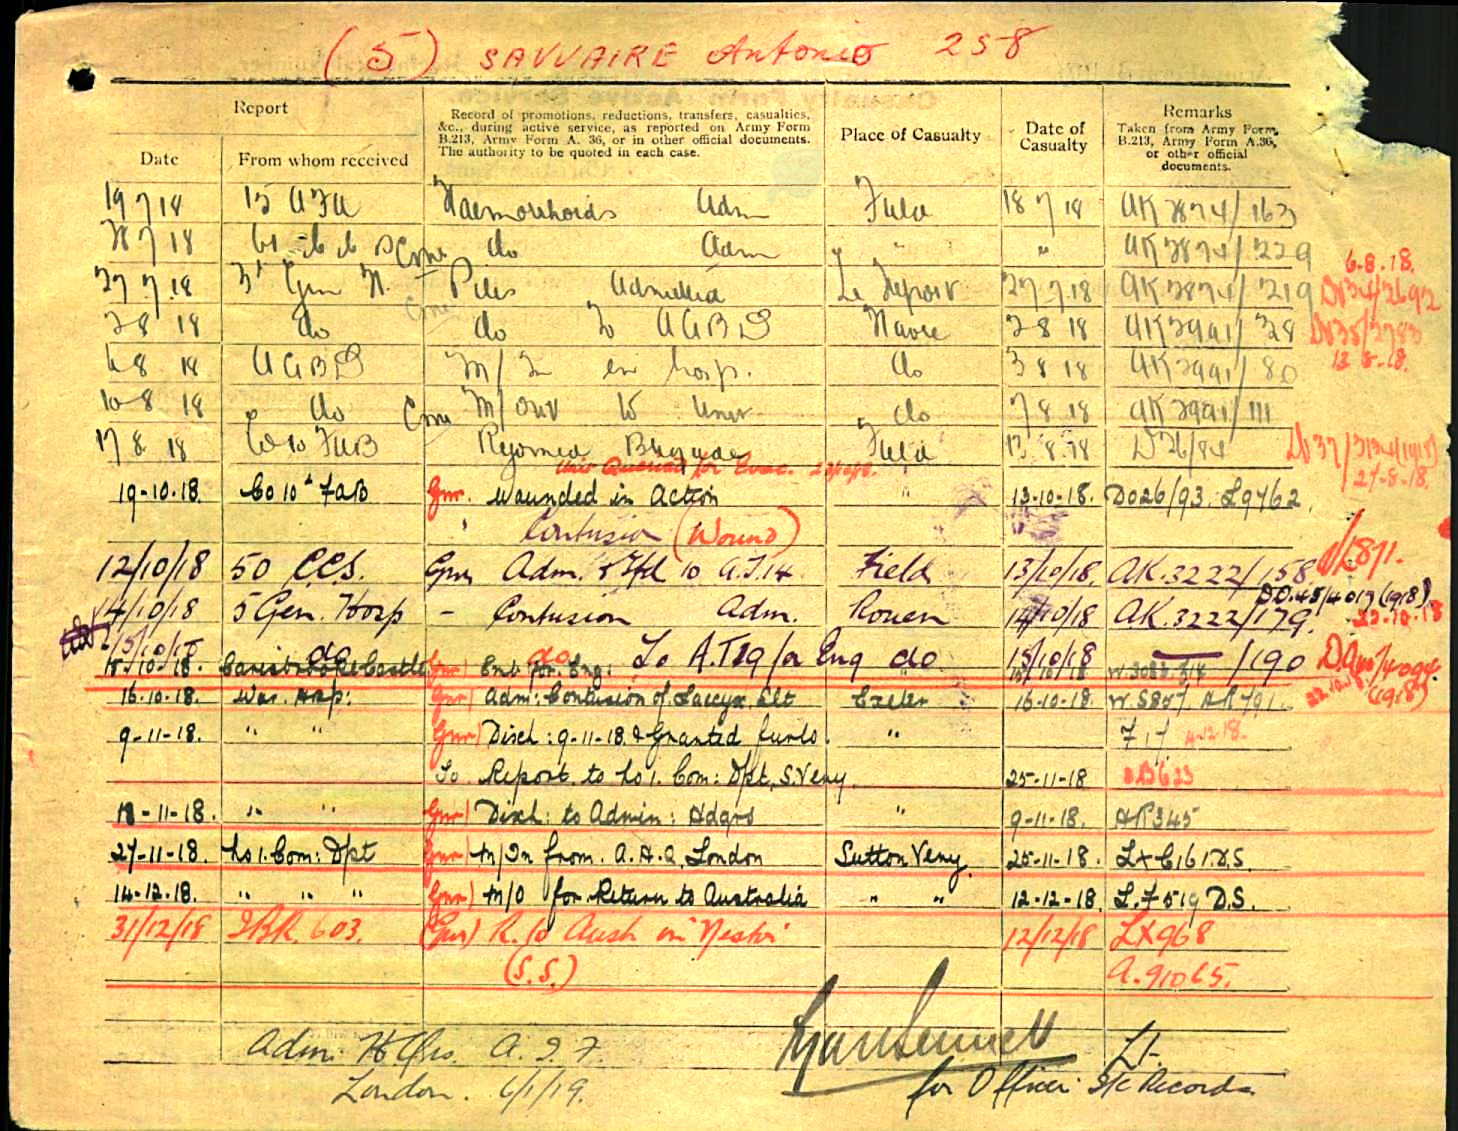 (5) SAVVAIRE Antonio 258
Report
Record of promotions, reductions, transfers, casualties,
&c., during active service, as reported on Army Form
B.213, Army Form A. 36, or in other official documents.
The authority to be quoted in each case.
Place of Casualty
Date of
Casualty
Remarks
Taken from Army Form
B.213, Army Form A.36,
or other official
documents.
Date
From whom received
19 7 18 15 AFA Haemorrhoids Adm Field 18 7 18 AK 2874/163
do Adm " " AK 2874/229
6.8.18.
27 7.18 3rd Gen H. Piles Admitted Le Treport 27 7.18 AK 2874/219
2 8 18 do do To AGBD Havre 2 8 18 AK 2991/28
12.8.18.
6 8 18 AGBD M/In ex hosp. do 3 8 18 AK 2991/80
10 8 18 do M/Out to Unit do 7 8 18 AK 2991/111
17 8 18 Co 10 FAB Rejoined Brigade Field 13.8.18 D26/84
27-8-18.
19-10-18. Co 10th FAB Gnr. Wounded in Action " 13-10-18. DO26/93. L9762.
Contusion (Wound)
12/10/18 50 CCS. Gnr Adm. & Tfd to A.T.14 Field 13/10/18. AK.3222/158
DO.45/4017 (1918)
14/10/18 5 Gen. Hosp - Contusion Adm. Rouen 14/10/18 AK.3222/179.
23.10.18
15/10/18 do do. To A.T29 for Eng do 15/10/18 /190
15.10.18. Carisbrooke Castle Gnr) Emb for. Eng:
16.10.18. War. Hosp: Gnr) Adm: Contusion of Coccyx. Slt Exeter 16-10-18. W.5807. AK791.
(1918)
9-11-18. " " Gnr) Disch: 9-11-18. & Granted furlo. "
To Report. to No 1. Com: Dpt, S.Veny. 25-11-18 DB623
18-11-18. " " Gnr) Disch: to Admin: Hdqrs " 9-11-18. AK345
27-11-18. No 1. Com: Dpt Gnr) M/In from. A.H.Q. London Sutton Veny. 25-11-18. LxC161D.S.
14-12-18. " " " Gnr) M/O for Return to Australia " " 12-12-18. L.7519 D.S.
31/12/18 IBR. 603. (Gnr) R. to Aust in "Nestor" 12/12/18 Lx968
(S.S.) A.91065.
Adm: H Qrs. A. I. F.
Lt.
London. 6/1/19.
for Officer i/c Records